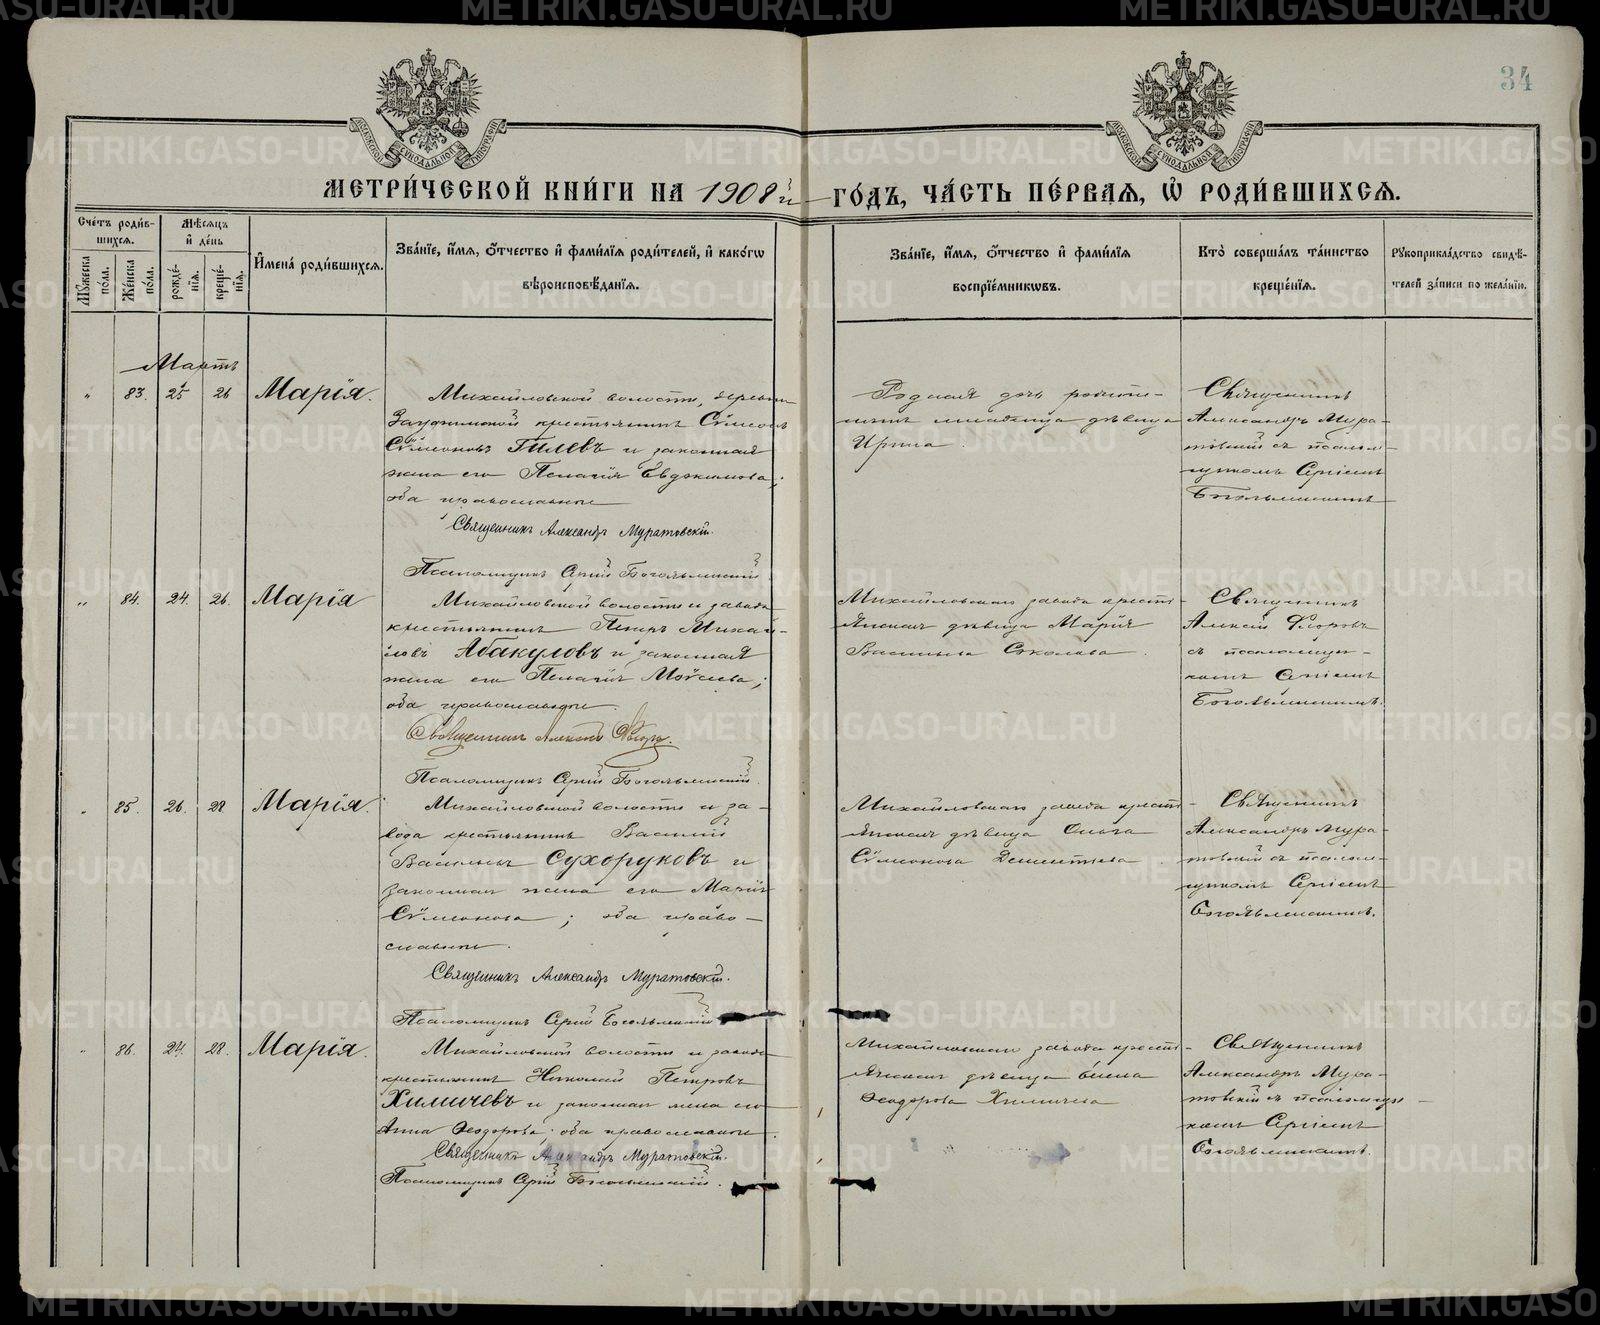 34
МОСКОВСКОЙ СѴНОДАЛЬНОЙ ТИПОГРАФІИ
МОСКОВСКОЙ СѴНОДАЛЬНОЙ ТИПОГРАФІИ
МЕТРИ́ЧЕСКОЙ КНИ́ГИ НА 1908й ГО́ДЪ, ЧА́СТЬ ПЕ́РВАЯ, Ѿ РОДИ́ВШИХСЯ.
Сче́тъ роди́в-
шихся.
Мѣ́сяцъ
и҆ де́нь
Мꙋ́жеска по́ла.
Же́нска по́ла.
рожде́-
нїя.
креще́-
нїя.
И҆мена̀ роди́вшихся.
Зва́нїе, и҆́мя, ѻ҆́тчество и҆ фами́лїя роди́телей, и҆ како́гѡ
вѣроисповѣ́данїя.
Зва́нїе, и҆́мя, ѻ҆́тчество и҆ фами́лїя
воспрїе́мникѡвъ.
Кто̀ соверша́лъ та́инство
креще́нїя.
Рꙋкоприкла́дство свидѣ́-
телей за́писи по жела́нїю.
Мартъ
" 83. 25 26 Марія.
Михайловской волости, деревни
Зауфимской крестьянинъ Сѵмеонъ
Сѵмеоновъ Гилевъ и законная
жена его Пелагія Евдокимова;
оба православные
Священникъ Александръ Муратовскій.
Псаломщикъ Сергій Богоявленскій
Родная дочь родите-
дѣвица
Ирина
Священникъ
Александръ Мура-
товскій съ псалом-
щикомъ Сергіемъ
Богоявленскимъ
" 84. 24. 26. Марія
Михайловской волости и завода
крестьянинъ Петръ Михай-
ловъ Абакуловъ и законная
жена его Пелагія Моѵсеева;
оба православные.
Священникъ Алексій Флоровъ.
Псаломщикъ Сергій Богоявленскій.
Михайловскаго завода кресть-
янская дѣвица Марія
Васильева Соколова.
Священникъ
Алексій Флоровъ
съ псаломщи-
комъ Сергіемъ
Богоявленскимъ.
" 85. 26. 28 Марія.
Михайловской волости и за-
вода крестьянинъ Василій
Васильевъ Сухоруковъ и
законная жена его Марія
Сѵмеонова; оба право-
славные.
Священникъ Александръ Муратовскій.
Псаломщикъ Сергій Богоявленскій
Михайловскаго завода кресть-
янская дѣвица Ольга
Сѵмеонова Дементьева.
Священникъ
Александръ Мура-
товскій съ псалом-
щикомъ Сергіемъ
Богоявленскимъ.
" 86. 24. 28. Марія.
Михайловской волости и завода
крестьянинъ Николай Петровъ
Химичевъ и законная жена его
Анна Ѳеодорова; оба православные.
Священникъ Александръ Муратовскій.
Псаломщикъ Сергій Богоявленскій.
Михайловскаго завода кресть-
янская дѣвица
Ѳеодорова Химичева
Священникъ
Александръ Мура-
товскій съ псаломщи-
комъ Сергіемъ
Богоявленскимъ.
METRIKI.GASO-URAL.RU